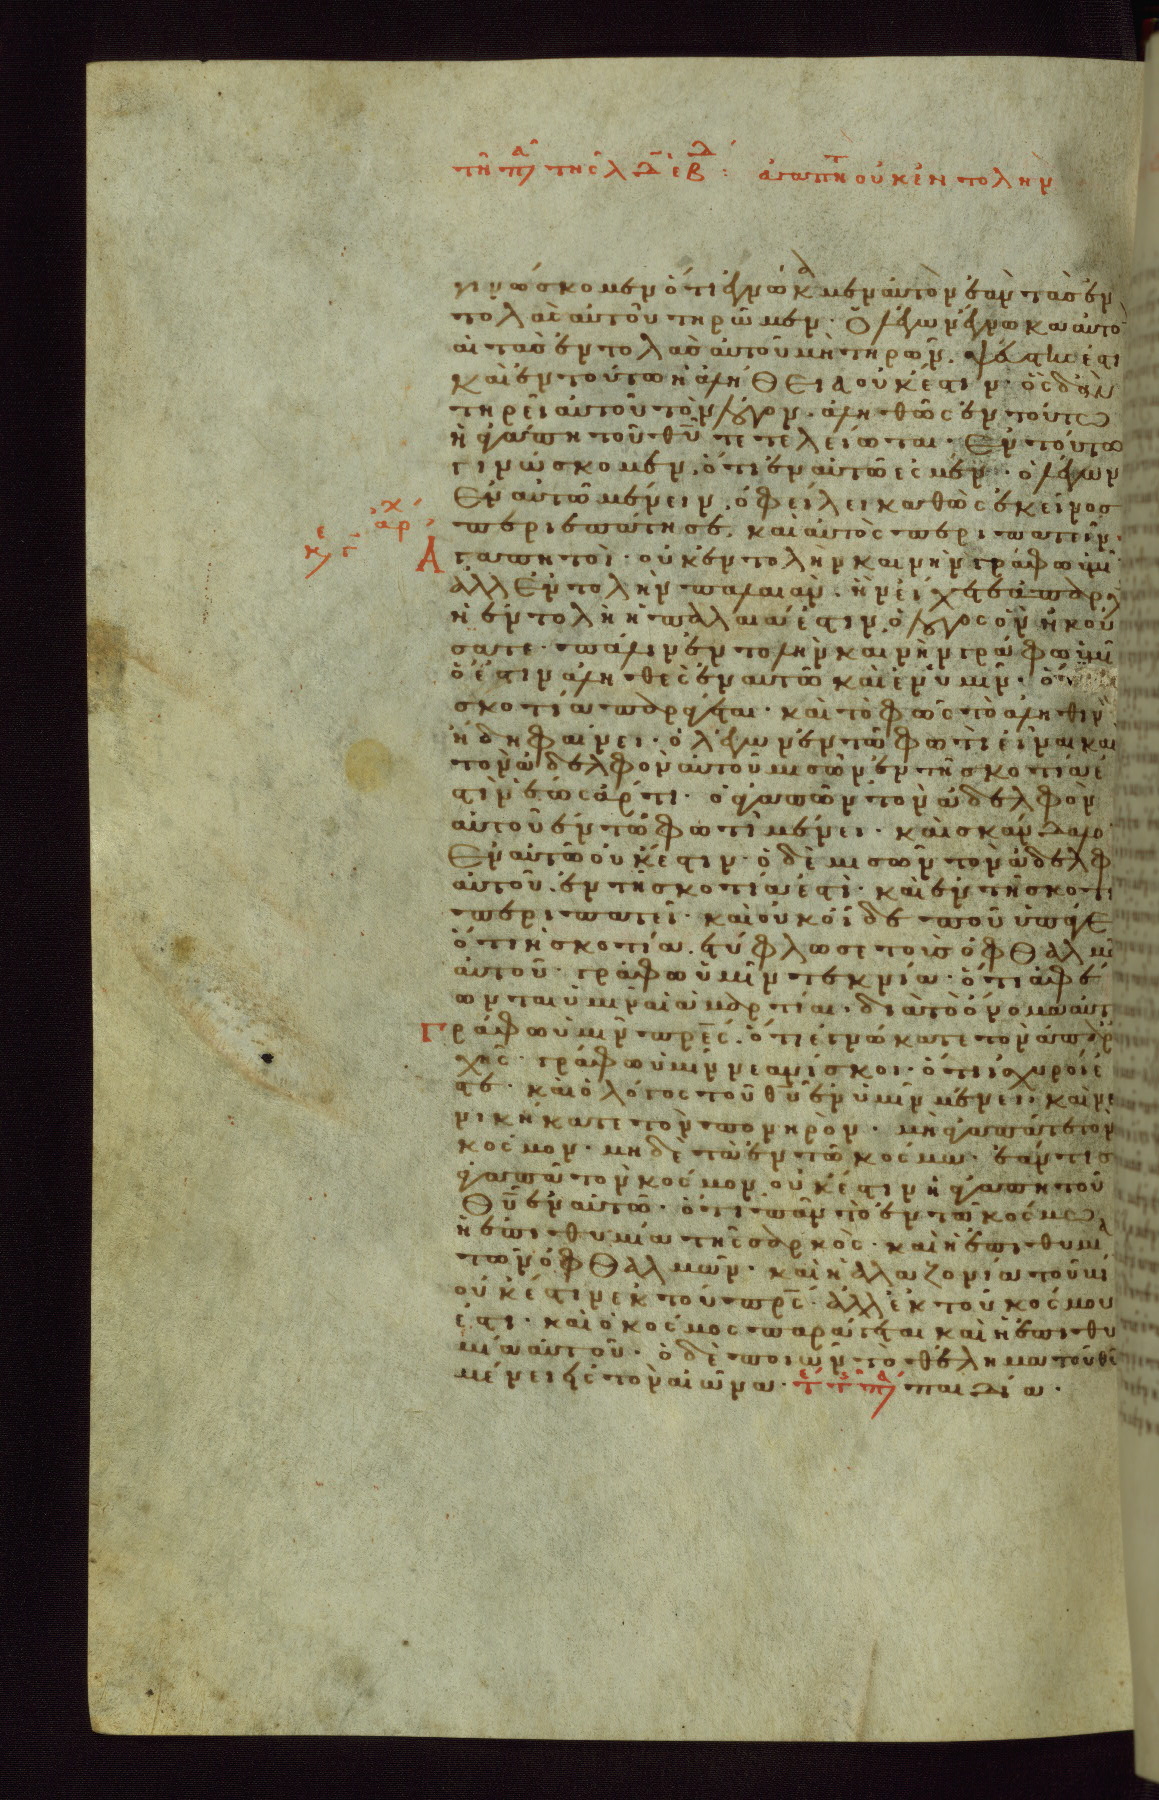 τῆ π̸ᾱ τῆς λδ̄ ἑβδ: ἀγαπητ οὐκ ἐντολὴν
γινώσκομεν ὅτι ἐγνώκαμεν αὐτὸν ἐὰν τὰς ἐν
τολὰς αὐτοῦ τηρῶμεν· ὁ λέγων ἔγνωκα αὐτὸ
αι τὰς ἐντολὰς αὐτοῦ μὴ τηρῶν. ψεύστης ἐστι
καὶ ἐν τούτω ἡ ἀλήθεια οὐκ ἔστιν· ὃς δ' ἂν
τηρεῖ αὐτοῦ τὸν λόγον. ἀληθῶς ἐν τούτω
ἡ ἀγάπη τοῦ θῡ τετελείωται· Ἐν τούτω
γινώσκομεν, ὅτι ἐν αὐτῶ ἐσμεν· ὁ λέγων
Ἐν αὐτῶ μένειν, ὀφείλει καθὼς ἐκεῖνος
περιεπάτησε, καὶ αὐτὸς περιπατεῖν·
αρχ
κε
Ἀγαπητοὶ· οὐκ ἐντολὴν καινὴν γράφω ὑμῖ
ἀλλ' Ἐντολὴν παλαιὰν· ἣν εἴχετε ἀπαρχ
ἡ ἐντολὴ ἡ παλαιά ἐστιν, ὁ λόγος ὃν ἠκού
σατε· πάλιν ἐντολὴν καινὴν γράφω ὑμῖ
ὅ ἐστιν ἀληθὲς ἐν αὐτῶ καὶ ἐν ὑμῖν· ὅτι
σκοτία παράγεται· καὶ τὸ φῶς τὸ ἀληθινὸ
ἤδη φαίνει· ὁ λέγων ἐν τῶ φωτὶ εἶναι και
τὸν ἀδελφὸν αὐτοῦ μισῶν ἐν τῆ σκοτία ἐ
στὶν ἕως ἄρτι· ὁ ἀγαπῶν τὸν ἀδελφὸν
αὐτοῦ ἐν τῶ φωτὶ μένει· καὶ σκάνδαλο
Ἐν αὐτῶ οὐκ ἔστιν· ὁ δὲ μισῶν τὸν ἀδελφ
αὐτοῦ, ἐν τῆ σκοτία ἐστὶ· καὶ ἐν τῆ σκοτι
περιπατεῖ· καὶ οὐκ οἶδε ποῦ ὑπάγε
ὅτι ἡ σκοτία ἐτύφλωσε τοὺς ὀφθαλμ
αὐτοῦ· γράφω ὑμῖν τεκνία· ὅτι ἀφέ
ωνται ὑμῖν αἱ ἁμαρτίαι· διὰ τὸ ὄνομα αὐτ
Γράφω ὑμῖν πρε̄ς· ὅτι ἐγνώκατε τὸν ἀπαρ
χῆς· γράφω ὑμῖν νεανίσκοι· ὅτι ἰσχυροί ἐ
στε· καὶ ὁ λόγος τοῦ θῡ ἐν ὑμῖν μένει· καὶ νε
νικήκατε τὸν πονηρὸν· μὴ ἀγαπᾶτε τὸν
κόσμον· μηδὲ τὰ ἐν τῶ κόσμω· ἐάν τις
ἀγαπᾶ τὸν κόσμον, οὐκ ἔστιν ἡ ἀγάπη τοῦ
θῡ ἐν αὐτῶ· ὅτι πᾶν τὸ ἐν τῶ κόσμω,
ἡ ἐπιθυμία τῆς σαρκὸς· καὶ ἡ ἐπιθυμία
τῶν ὀφθαλμῶν· καὶ ἡ ἀλαζονία τοῦ
οὐκ ἔστιν ἐκ τοῦ πρ̄ς· ἀλλ' ἐκ τοῦ κόσμου
ἐστι· καὶ ὁ κόσμος παράγεται καὶ ἡ ἐπιθυ
μία αὐτοῦ· ὁ δὲ ποιῶν τὸ θέλημα τοῦ θῡ
μένει εἰς τὸν αἰῶνα· παιδία·